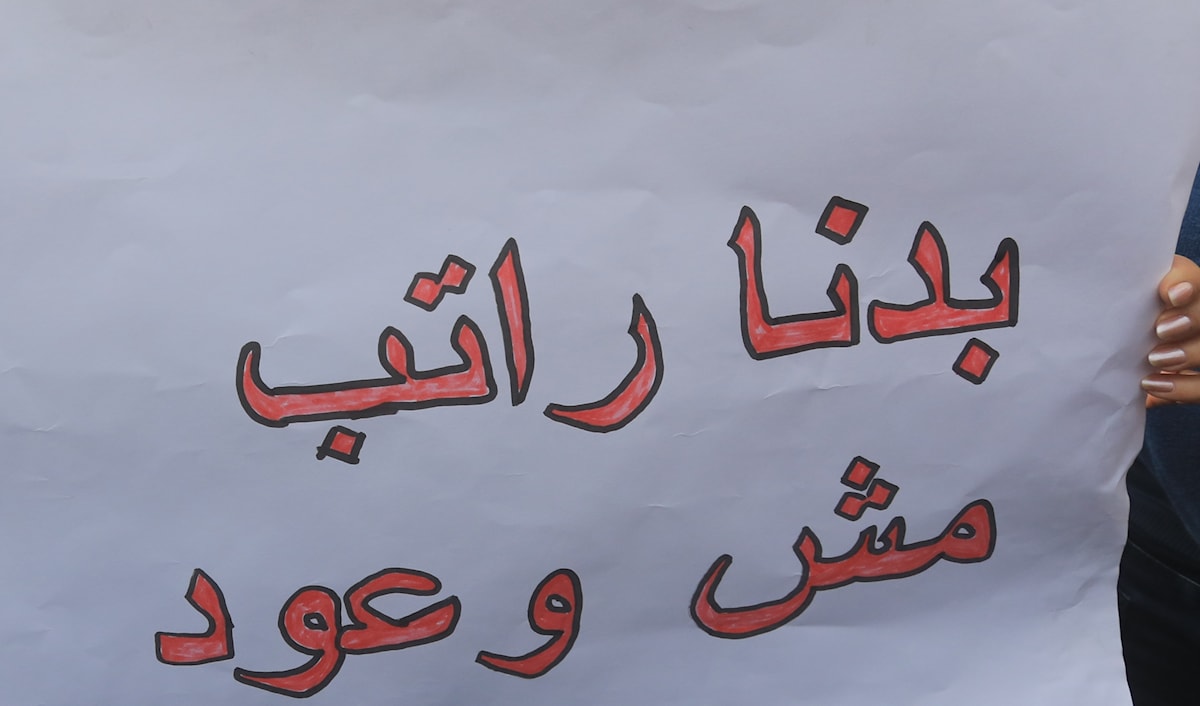 بدنا راتب
مش وعود